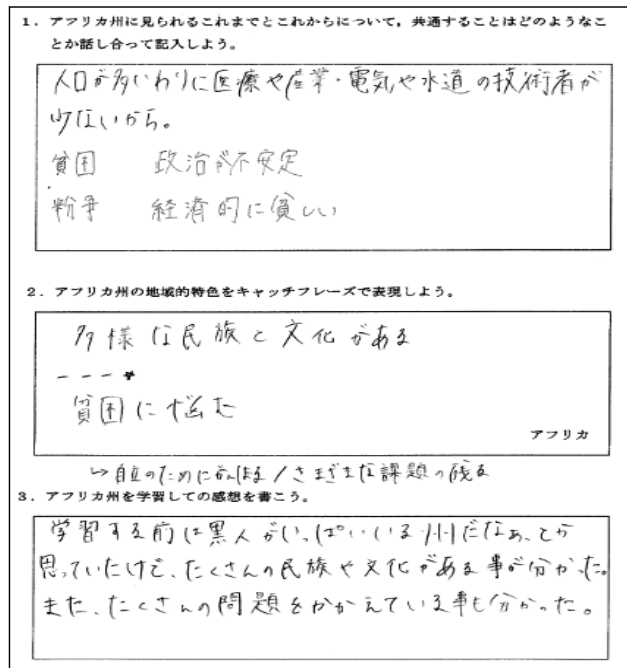 1．アフリカ州に見られるこれまでとこれからについて，共通することはどのようなこ
とか話し合って記入しよう。
人口が多いわりに医療や産業・電気や水道の技術者が
少ないから。
貧困　政治が不安定
紛争　経済的に貧しい
2．アフリカ州の地域的特色をキャッチフレーズで表現しよう。
多様な民族と文化がある
貧困に悩む
アフリカ
↳自立のためにがんばる／さまざまな課題の残る
3．アフリカ州を学習しての感想を書こう。
学習する前は黒人がいっぱいいる州だなぁ、とか
思っていたけど、たくさんの民族や文化がある事が分かった。
また、たくさんの問題をかかえている事も分かった。